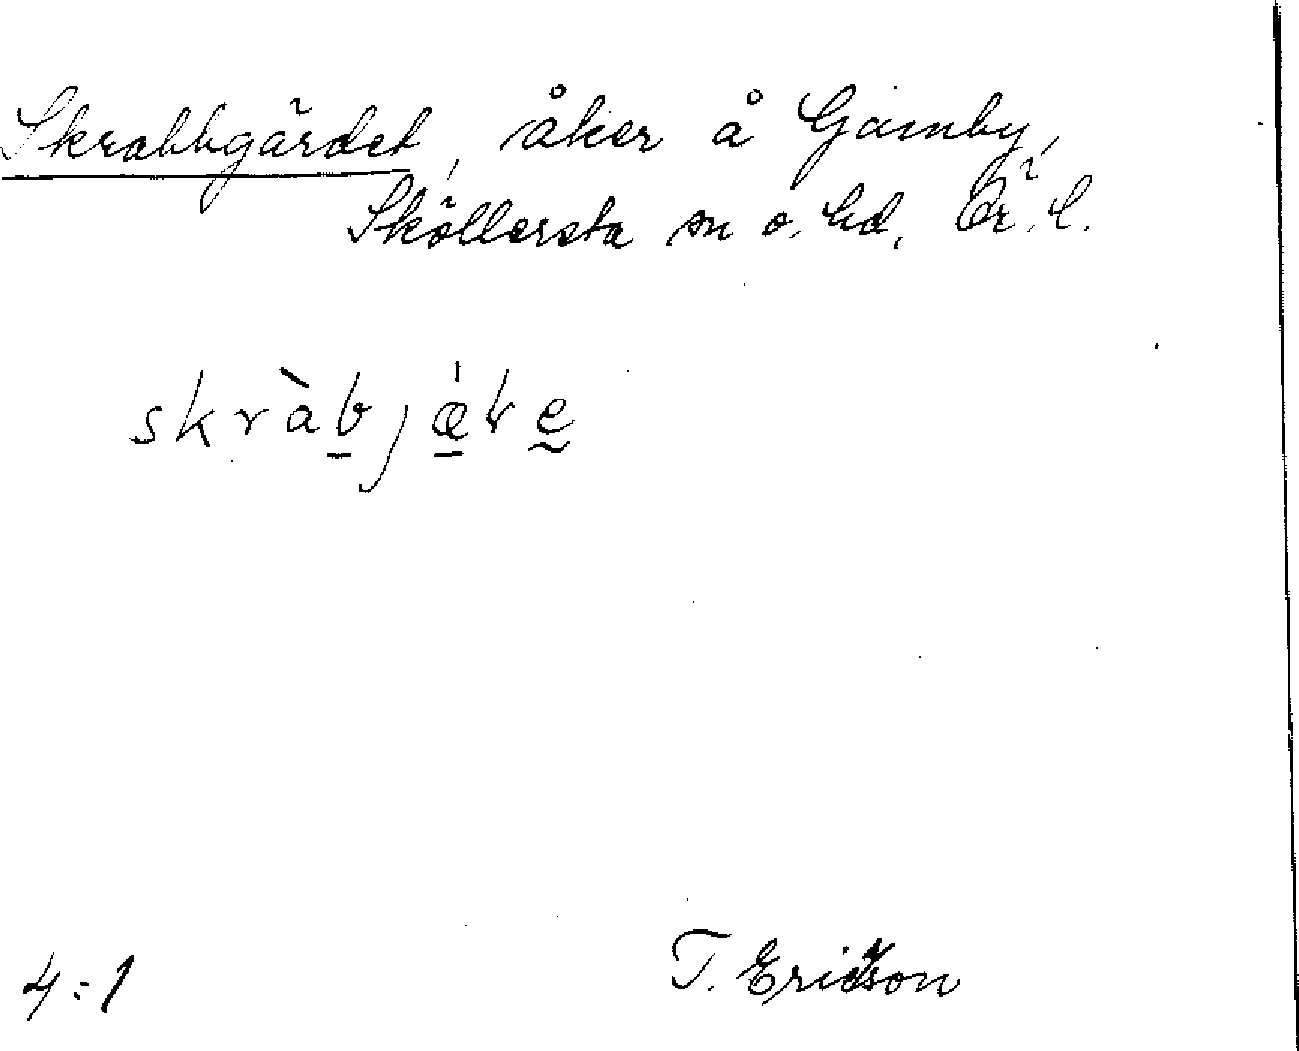 Skrabbgärdet, åker å Gamby,
Sköllersta sn o. hd, Ör. l.
skràb̲jǽ̲re̲
4:1
T. Ericson